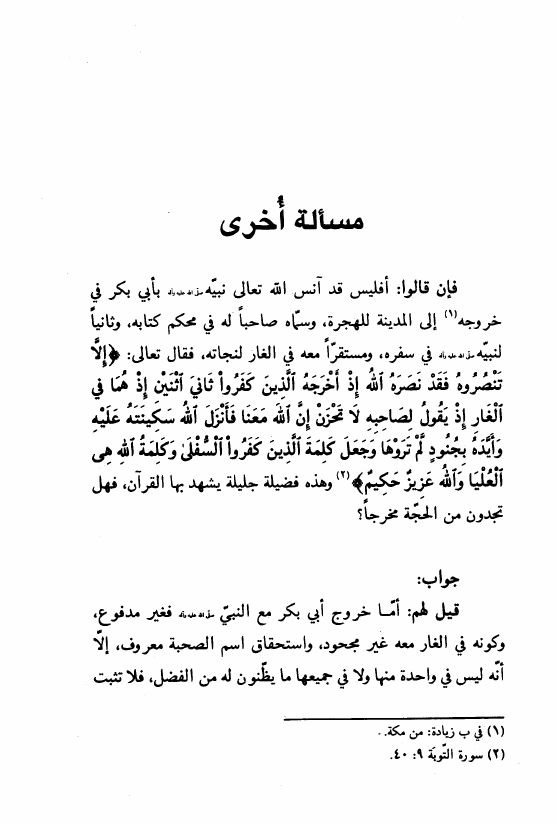 مسألة أُخرى
فإن قالوا: أفليس قد آنس الله تعالى نبيّه صلى الله عليه وآله بأبي بكر في
خروجه(١) إلى المدينة للهجرة، وسمّاه صاحباً له في محكم كتابه، وثانياً
لنبيّه صلى الله عليه وآله في سفره، ومستقرّاً معه في الغار لنجاته، فقال تعالى: ﴿إِلَّا
تَنْصُرُوهُ فَقَدْ نَصَرَهُ ٱللهُ إِذْ أَخْرَجَهُ ٱلَّذِينَ كَفَرُواْ ثَانِيَ ٱثْنَيْنِ إِذْ هُمَا فِي
ٱلْغَارِ إِذْ يَقُولُ لِصَاحِبِهِ لَا تَحْزَنْ إِنَّ ٱللهَ مَعَنَا فَأَنْزَلَ ٱللهُ سَكِينَتَهُ عَلَيْهِ
وَأَيَّدَهُ بِجُنُودٍ لَّمْ تَرَوْهَا وَجَعَلَ كَلِمَةَ ٱلَّذِينَ كَفَرُواْ ٱلسُّفْلَىٰ وَكَلِمَةُ ٱللهِ هِىَ
ٱلْعُلْيَا وَٱللهُ عَزِيزٌ حَكِيمٌ﴾(٢) وهذه فضيلة جليلة يشهد بها القرآن، فهل
تجدون من الحجّة مخرجاً؟
جواب:
قيل لهم: أمّا خروج أبي بكر مع النبيّ صلى الله عليه وآله فغير مدفوع،
وكونه في الغار معه غير مجحود، واستحقاق اسم الصحبة معروف، إلّا
أنّه ليس في واحدة منها ولا في جميعها ما يظّنون له من الفضل، فلا تثبت
(١) في ب زيادة: من مكة..
(٢) سورة التّوبَة ٩: ٤٠.